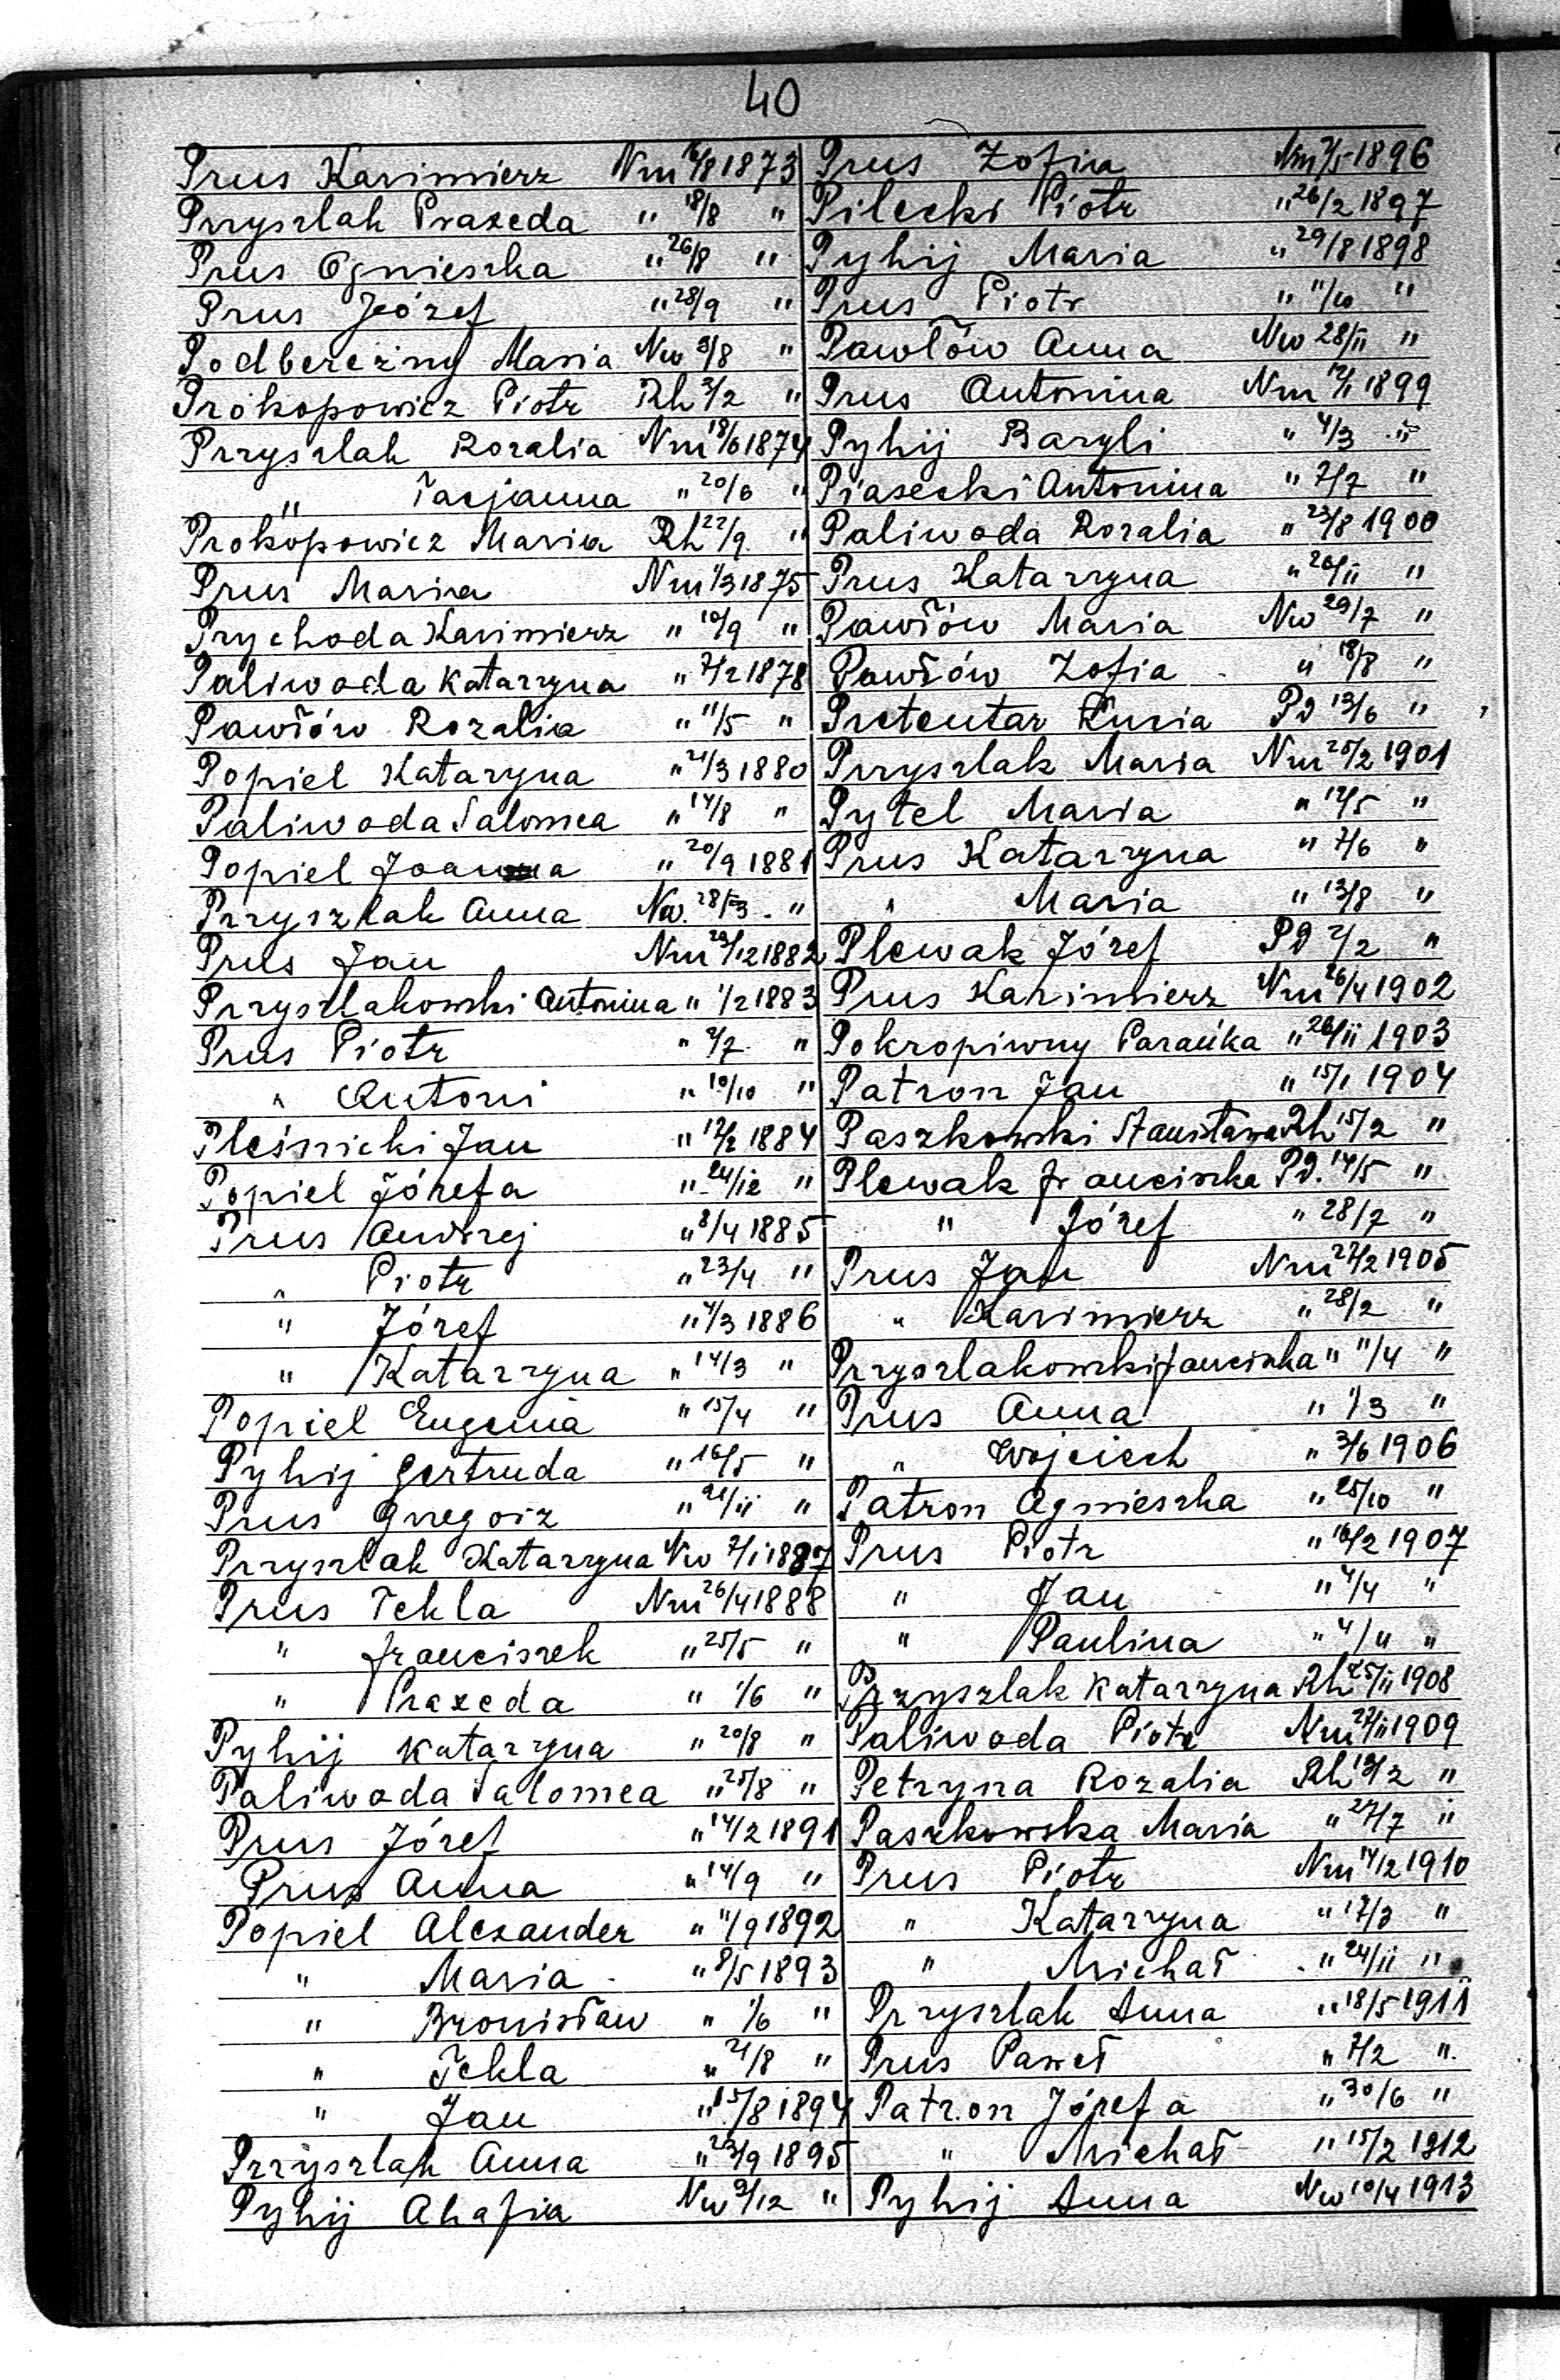 40
Prus Kazimierz Nm 16/8 1873
Przyszlak Praxeda " 18/8 "
Prus Agnieszka " 26/8 "
Prus Józef " 28/9 "
Podbereżny Maria Nw 3/8 "
Prokopowicz Piotr Rh 2/2 "
Przyszlak Rozalia Nm 18/6 1874
" Tacjanna " 20/6 "
Prokopowicz Maria Rh 22/9 "
Prus Maria Nm 1/3 1875
Prychoda Kazimierz " 10/9 "
Paliwoda Katarzyna " 7/2 1878
Pawłów Rozalia " 11/5 "
Popiel Kataryna " 21/3 1880
Paliwoda Salomea " 14/8 "
Popiel Joanna " 20/9 1881
Przyszlak Anna Nw. 28/3 "
Prus Jan Nm 29/12 1882
Przyszlakowski Antonina " 1/2 1883
Prus Piotr " 2/7 "
" Antoni " 10/10 "
Pleśnicki Jan " 12/2 1884
Popiel Józefa " 24/12 "
Prus Andrzej " 8/4 1885
" Piotr " 23/4 "
" Józef " 4/3 1886
" Katarzyna " 14/3 "
Popiel Eugenia " 15/4 "
Pyhij Gertruda " 16/5 "
Prus Grzegorz " 21/11 "
Przyszlak Katarzyna Nw 7/1 1887
Prus Tekla Nm 26/4 1888
" Franciszek " 25/5 "
" Praxeda " 1/6 "
Pyhij Katarzyna " 20/8 "
Paliwoda Salomea " 25/8 "
Prus Józef " 14/2 1891
Prus Anna " 14/9 "
Popiel Alexander " 11/9 1892
" Maria " 8/5 1893
" Bronisław " 1/6 "
" Tekla " 21/8 "
" Jan " 15/8 1894
Przyszlak Anna " 23/9 1895
Pyhij Ahafia Nw 9/12 "
Prus Zofia Nm 7/5 1896
Pilecki Piotr " 26/2 1897
Pyhij Maria " 29/8 1898
Prus Piotr " 11/10 "
Pawłów Anna Nw 28/11 "
Prus Antonina Nm 12/1 1899
Pyhij Bazyli " 4/3 "
Piasecki Antonina " 7/7 "
Paliwoda Rozalia " 23/8 1900
Prus Katarzyna " 26/11 "
Pawłów Maria Nw 29/7 "
Pawłów Zofia " 18/8 "
Pretentar Pd 13/6 "
Przyszlak Maria Nm 25/2 1901
Pytel Maria " 12/5 "
Prus Katarzyna " 7/6 "
" Maria " 13/8 "
Plewak Józef Pd 2/2 "
Prus Kazimierz Nm 26/4 1902
Pokropiwny Parańka " 26/11 1903
Patron Jan " 15/1 1904
Paszkowski Stanisława Rh 15/2 "
Plewak Franciszka Pd. 14/5 "
" Józef " 28/7 "
Prus Jan Nm 27/2 1905
" Kazimierz " 28/2 "
Przyszlakowski Franciszka " 11/4 "
Prus Anna " 1/3 "
" Wojciech " 3/6 1906
Patron Agnieszka " 25/10 "
Prus Piotr " 16/2 1907
" Jan " 4/4 "
" Paulina " 4/4 "
Przyszlak Katarzyna Rh 25/11 1908
Paliwoda Piotr Nm 27/11 1909
Petryna Rozalia Rh 13/2 "
Paszkowska Maria " 27/7 "
Prus Piotr Nm 14/12 1910
" Katarzyna " 17/3 "
" Michał " 24/11 "
Przyszlak Anna " 18/5 1911
Prus Paweł " 7/2 "
Patron Józefa " 30/6 "
" Michał " 15/2 1912
Pyhij Anna Nw 10/4 1913